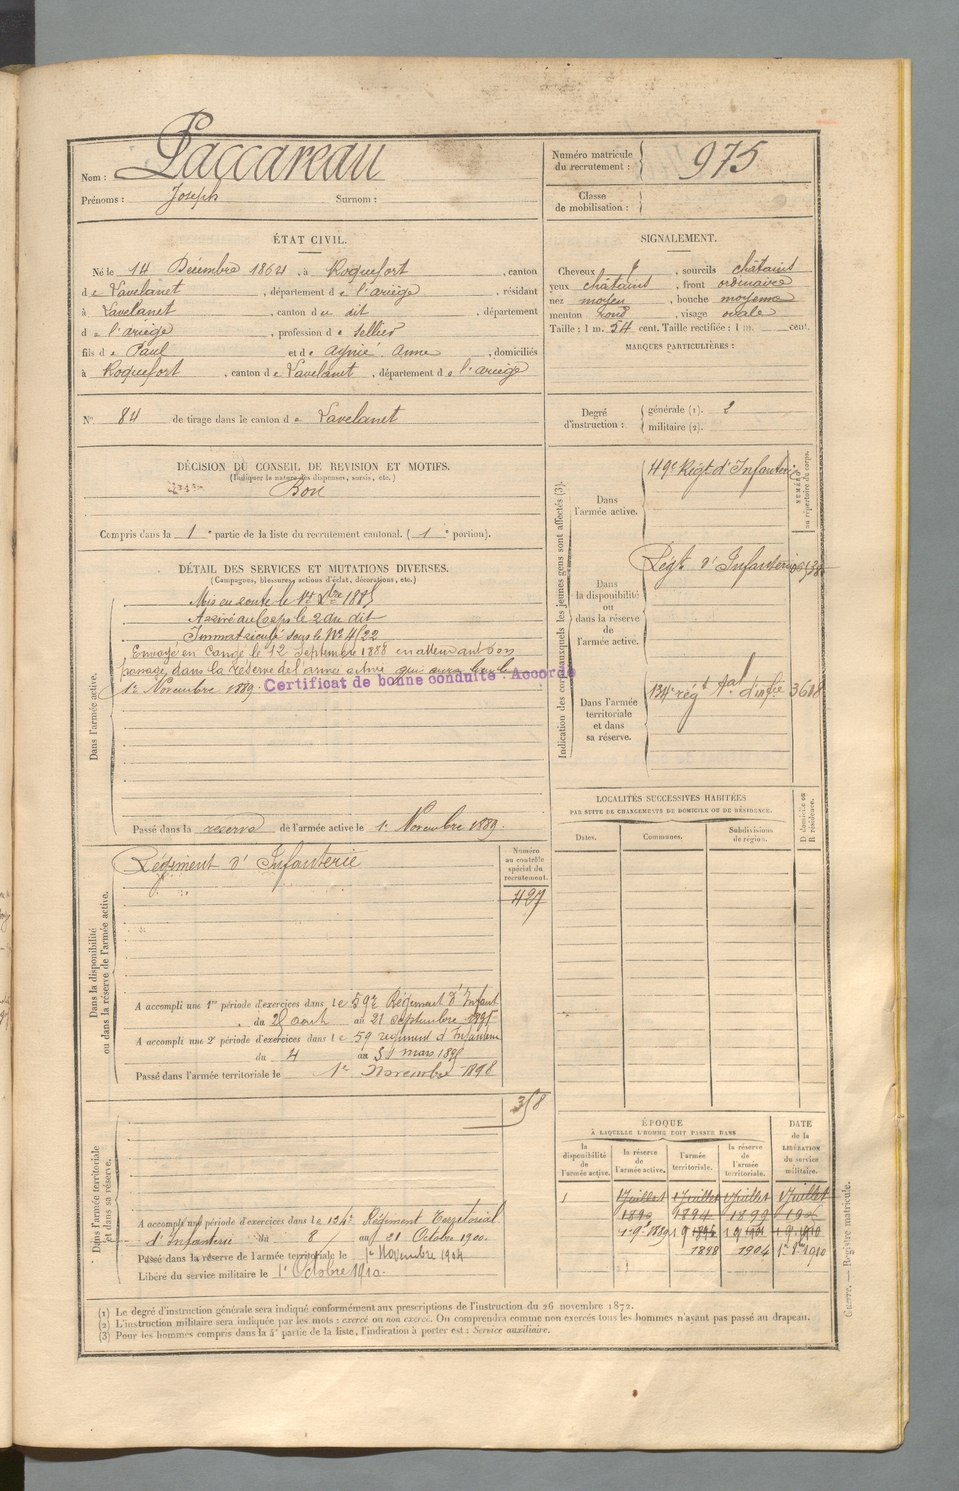 Nom : Laccareau
Prénoms : Joseph Surnom :
Numéro matricule du recrutement : 975
Classe de mobilisation :
ÉTAT CIVIL.
Né le 14 Décembre 1864, à Roquefort, canton
de Lavelanet, département de l'ariège, résidant
à Lavelanet, canton du dit, département
de l'ariège, profession de sellier
fils de Paul et de Aynié Anne, domiciliés
à Roquefort, canton de Lavelanet, département de l'ariège
SIGNALEMENT.
Cheveux, sourcils châtains
yeux châtains, front ordinaire
nez moyen, bouche moyenne
menton rond, visage ovale
Taille : 1 m. 54 cent. Taille rectifiée : 1 m. cent.
MARQUES PARTICULIÈRES :
N° 84 de tirage dans le canton de Lavelanet
Degré d'instruction : générale (1). 2
militaire (2).
DÉCISION DU CONSEIL DE REVISION ET MOTIFS.
(Indiquer la nature des dispenses, sursis, etc.)
Bon
Compris dans la 1e partie de la liste du recrutement cantonal. (1e portion).
DÉTAIL DES SERVICES ET MUTATIONS DIVERSES.
(Campagnes, blessures, actions d'éclat, décorations, etc.)
Dans l'armée active.
Mis en route le 1er Xbre 1885
Arrivé au Corps le 2 du dit
Immatriculé sous le N° 4122
Envoyé en Congé le 12 Septembre 1888 en attendant son
passage dans la réserve de l'armée active qui aura lieu le
1er Novembre 1889. Certificat de bonne conduite : Accordé
Passé dans la réserve de l'armée active le 1er Novembre 1889.
Indication des corps auxquels les jeunes gens sont affectés (3).
NUMÉRO au répertoire du corps.
Dans l'armée active.
49e Régt d'Infanterie
Dans la disponibilité ou dans la réserve de l'armée active.
Régt d'Infanterie
Dans l'armée territoriale et dans sa réserve.
134e régt tal d'infie 3618
LOCALITÉS SUCCESSIVES HABITÉES
PAR SUITE DE CHANGEMENTS DE DOMICILE OU DE RÉSIDENCE.
Dates. Communes. Subdivisions de région. D domicile ou R résidence.
Dans la disponibilité ou dans la réserve de l'armée active.
Régiment d'Infanterie
Numéro au contrôle spécial du recrutement.
A accompli une 1re période d'exercices dans le 59e Régiment d'Infant
du août au 21 septembre
A accompli une 2e période d'exercices dans le 59 régiment d'Infanterie
du 4 au 31 mars
Passé dans l'armée territoriale le 1er Novembre 1898
Dans l'armée territoriale et dans sa réserve.
A accompli une période d'exercices dans le 134e Régiment Territorial
d'Infanterie du 8 au 21 Octobre 1900.
Passé dans la réserve de l'armée territoriale le 1er Novembre 1904
Libéré du service militaire le 1er Octobre 1910.
ÉPOQUE
À LAQUELLE L'HOMME DOIT PASSER DANS
la disponibilité de l'armée active.
la réserve de l'armée active.
l'armée territoriale.
la réserve de l'armée territoriale.
DATE de la LIBÉRATION du service militaire.
1 Juillet 1 Juillet 1 Juillet 1 Juillet
1894 1899
1 9e 1889
1898 1904 1910
(1) Le degré d'instruction générale sera indiqué conformément aux prescriptions de l'instruction du 26 novembre 1872.
(2) L'instruction militaire sera indiquée par les mots : exercé ou non exercé. On comprendra comme non exercés tous les hommes n'ayant pas passé au drapeau.
(3) Pour les hommes compris dans la 4e partie de la liste, l'indication à porter est : Service auxiliaire.
Guerre. — Registre matricule.